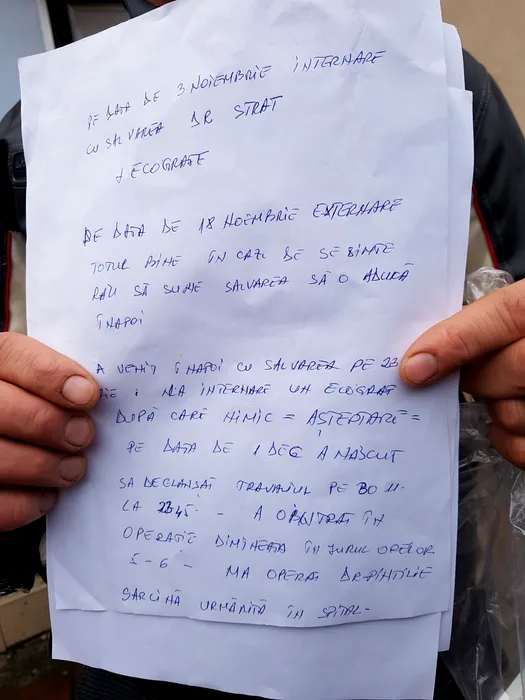 PE DATA DE 3 NOIEMBRIE INTERNARE
CU SALVAREA DR STRAT
+ ECOGRAFE
PE DATA DE 18 NOEMBRIE EXTERNARE
TOTUL BINE ÎN CAZU DE SE SIMTE
RĂU SĂ SUNE SALVAREA SĂ O ADUCĂ
ÎNAPOI
A VENIT ÎNAPOI CU SALVAREA PE 23
LA INTERNARE UN ECOGRAF
DUPĂ CARE NIMIC = AȘTEPTARE =
PE DATA DE 1 DEC A NĂSCUT
SA DECLANSAT TRAVALIUL PE 30 11.
LA 2345 - A INTRAT ÎN
OPERATIE DIMINEATA ÎN JURUL ORELOR
5-6 - MA OPERAT DR PINTILIE
SARCINĂ URMĂRITĂ ÎN SPITAL-